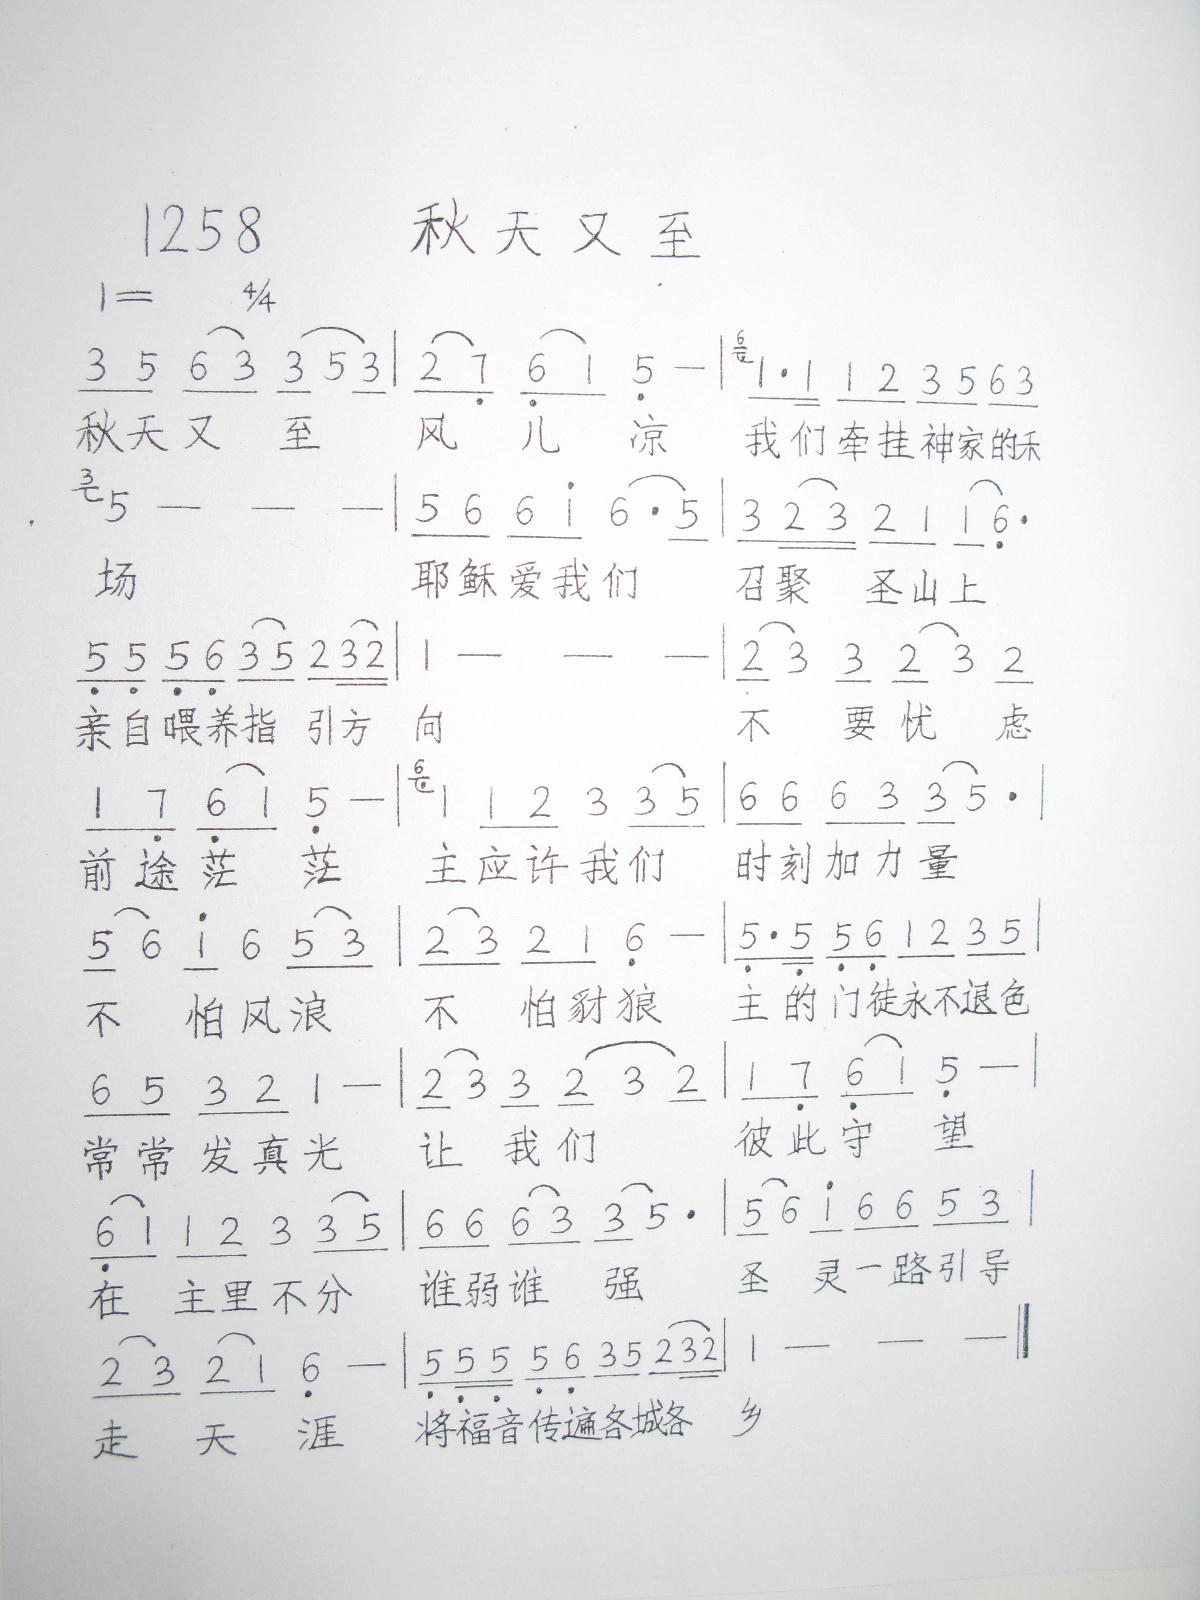 1258 秋天又至
1= 4/4
3 5 6 3 3 5 3 | 2 7 6 1 5 — | 6 1·1 1 2 3 5 6 3
秋天又 至 风 儿 凉 我们牵挂神家的禾
3 5 — — — | 5 6 6 1 6·5 | 3 2 3 2 1 1 6·
场 耶稣爱我们 召聚 圣山上
5 5 5 6 3 5 2 3 2 | 1 — — — | 2 3 3 2 3 2
亲自喂养指 引方 向 不 要忧 虑
1 7 6 1 5 — | 6 1 1 2 3 3 5 | 6 6 6 3 3 5· |
前途茫 茫 主应许我们 时刻加力量
5 6 1 6 5 3 | 2 3 2 1 6 — | 5·5 5 6 1 2 3 5 |
不 怕风浪 不 怕豺狼 主的门徒永不退色
6 5 3 2 1 — | 2 3 3 2 3 2 | 1 7 6 1 5 — |
常常发真光 让 我们 彼此守 望
6 1 1 2 3 3 5 | 6 6 6 3 3 5· | 5 6 1 6 6 5 3 |
在 主里不分 谁弱谁 强 圣 灵一路引导
2 3 2 1 6 — | 5 5 5 5 6 3 5 2 3 2 | 1 — — — ‖
走 天 涯 将福音传遍各城各 乡